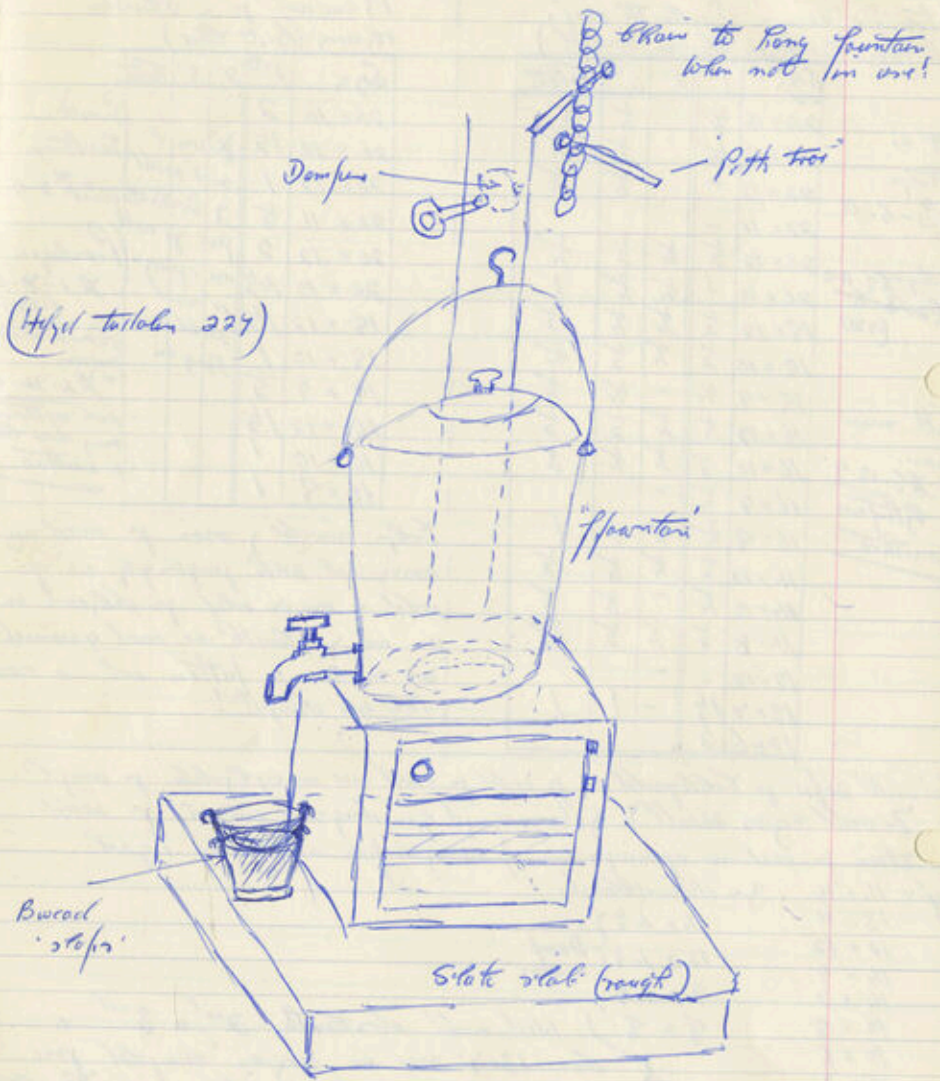 Chain to hang fountain
when not in use!
Damper
"Pith troi"
(Hefyd tudalen 224)
"ffowntan"
Bwcad
'slops'
Slate slab (rough)